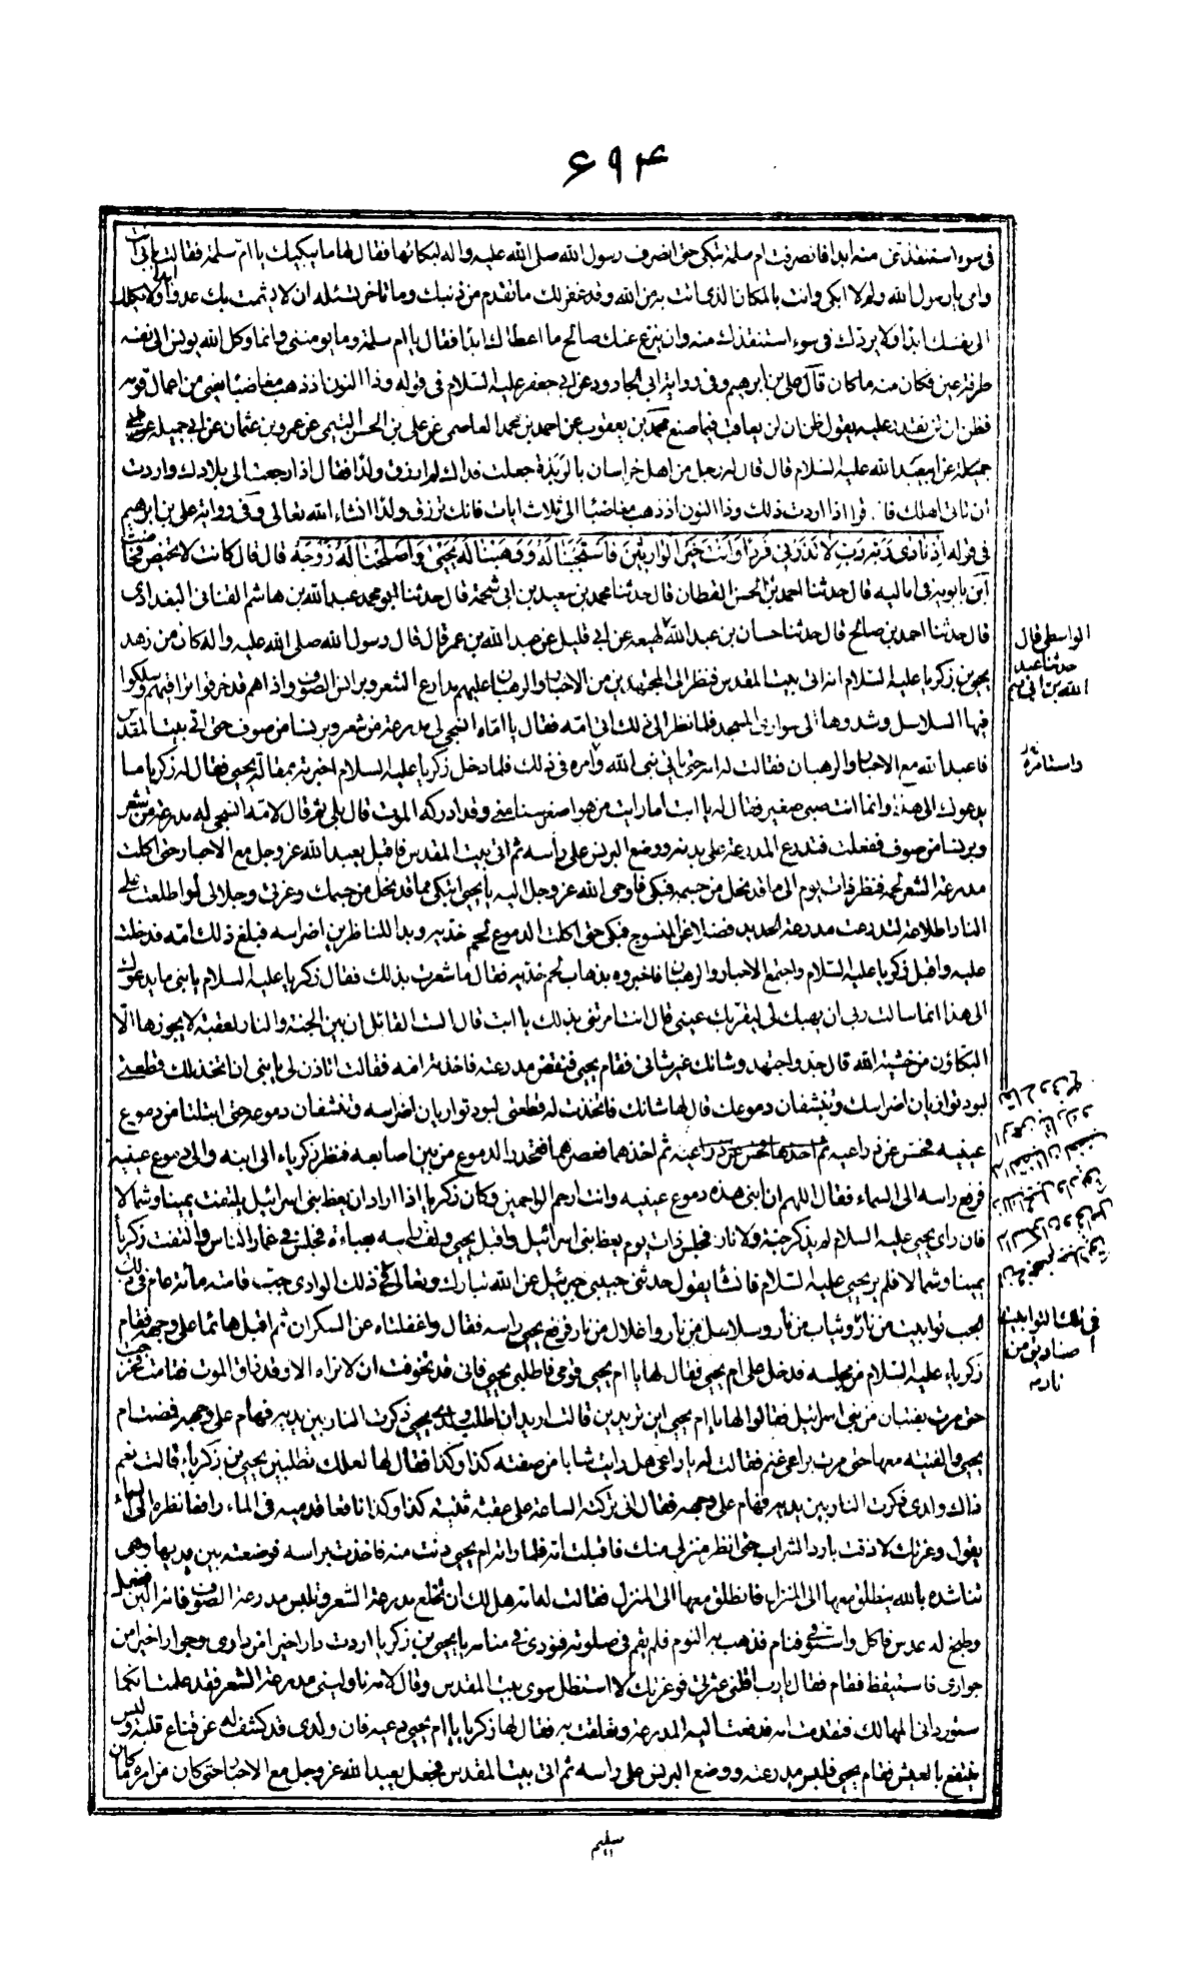 ۶۹۴
في سوء استنقذتني منه ابدا فانصرفت ام سلمة تبكي حتى انصرف رسول الله صلى الله عليه واله لبكائها فقال لها ما يبكيك يا ام سلمة فقالت بابي انت
وامي يا رسول الله ولم لا ابكي وانت بالمكان الذي انت به من الله وقد غفر لك ما تقدم من ذنبك وما تاخر تسئله ان لا يشمت بك عدوا ابدا ولا يكلك
الى نفسك ابدا ولا يردك في سوء استنقذك منه وان ينزع عنك صالح ما اعطاك ابدا فقال يا ام سلمة وما يومنني وانما وكل الله يونس الى نفسه
طرفة عين فكان منه ما كان قال علي بن ابرهيم وفي رواية ابي الجارود عن ابي جعفر عليه السلام في قوله وذا النون اذ ذهب مغاضبا يعني من اعمال قومه
فظن ان لن نقدر عليه يقول ظن ان لن يعاقب فيما صنع محمد بن يعقوب عن احمد بن محمد العاصمي عن علي بن الحسن التيمي عن عمرو بن عثمان عن ابي جميلة عن
جميلة عن ابي عبد الله عليه السلام قال قال له رجل من اهل خراسان بالربذة جعلت فداك لم ارزق ولدا فقال اذا رجعت الى بلادك واردت
ان تاتي اهلك فاقرا اذا اردت ذلك وذا النون اذ ذهب مغاضبا الى ثلاث ايات فانك ترزق ولدا انشاء الله تعالى وفي رواية علي بن ابرهيم
في قوله اذ نادى ربه رب لا تذرني فردا وانت خير الوارثين فاستجبنا له ووهبنا له يحيى واصلحنا له زوجه قال قال كانت لا تحيض فحاضت
ابن بابويه في اماليه قال حدثنا احمد بن الحسن القطان قال حدثنا محمد بن سعيد بن ابي شحمة قال حدثنا ابو محمد عبد الله بن هاشم القناني البغدادي
قال حدثنا احمد بن صالح قال حدثنا حسان بن عبد الله لهيعة عن ابي قبيل عن عبد الله بن عمر قال قال رسول الله صلى الله عليه واله كان من زهد
الواسطي قال
حدثنا عبد
الله بن ابي
يحيى بن زكريا عليه السلام انه اتى بيت المقدس فنظر الى المجتهدين من الاحبار والرهبان عليهم مدارع الشعر وبرانس الصوف واذا هم قد خرقوا تراقيهم وسلكوا
فيها السلاسل وشدوها الى سواري المسجد فلما نظر الى ذلك اتى امه فقال يا اماه انسجي لي مدرعة من شعر وبرنسا من صوف حتى اتي بيت المقدس
فاعبد الله مع الاحبار والرهبان فقالت له امه حتى ياتي نبي الله وآمره في ذلك فلما دخل زكريا عليه السلام اخبرته بمقالة يحيى فقال له زكريا ما
واستامره
يدعوك الى هذا وانما انت صبي صغير فقال له يا ابت اما رايت من هو اصغر سنا مني وقد ادركه الموت قال بلى ثم قال لامه انسجي له مدرعة من شعر
وبرنسا من صوف ففعلت فتدرع المدرعة على بدنه ووضع البرنس على رأسه ثم اتى بيت المقدس فاقبل يعبد الله عز وجل مع الاحبار حتى اكلت
مدرعة الشعر لحمه فنظر ذات يوم الى ما قد نحل من جسمه فبكى فاوحى الله عز وجل اليه يا يحيى اتبكي مما قد نحل من جسمك وعزتي وجلالي لو اطلعت على
النار اطلاعة لتدرعت مدرعة الحديد فضلا عن المنسوج فبكى حتى اكلت الدموع لحم خديه وبدا للناظرين اضراسه فبلغ ذلك امه فدخلت
عليه واقبل زكريا عليه السلام واجتمع الاحبار والرهبان فاخبروه بذهاب لحم خديه فقال ما شعرت بذلك فقال زكريا عليه السلام يا بني ما يدعوك
الى هذا انما سالت ربي ان يهبك لي لتقر بك عيني قال انت امرتني بذلك يا ابت قال الست القائل ان بين الجنة والنار لعقبة لا يجوزها الا
البكاؤن من خشية الله قال جد واجتهد وشانك غير شاني فقام يحيى فنفض مدرعته فاخذته امه فقالت اتاذن لي يا بني ان اتخذ لك قطعتي
لبود تواريان اضراسك وتنشفان دموعك قال لها شانك فاتخذت له قطعتي لبود تواريان اضراسه وتنشفان دموعه حتى ابتلتا من دموع
عينيه فحسر عن ذراعيه ثم اخذها فحسر عن ذراعيه ثم اخذها فعصرها فتحدر الدموع من بين اصابعه فنظر زكرياء الى ابنه والى دموع عينيه
فرفع راسه الى السماء فقال اللهم ان ابني هذه دموع عينيه وانت ارحم الراحمين وكان زكريا اذا اراد ان يعظ بني اسرائيل يلتفت يمينا وشمالا
فان راى يحيى عليه السلام لم يذكر جنة ولا نار فجلس ذات يوم يعظ بني اسرائيل واقبل يحيى وقد لف راسه بعباءة فجلس في غمار الناس والتفت زكريا
يمينا وشمالا فلم ير يحيى عليه السلام فانشا يقول حدثني حبيبي جبرئيل عن الله تبارك وتعالى في ذلك الوادي جب قامته مائة عام في ذلك
الجب توابيت من نار وثياب من نار وسلاسل من نار واغلال من نار فرفع يحيى راسه فقال واغفلتاه عن السكران ثم اقبل هائما على وجهه فقام
في تلك التوابيت
صناديق من
نار
زكرياء عليه السلام من مجلسه فدخل على ام يحيى فقال لها يا ام يحيى قومي فاطلبي يحيى فاني قد تخوفت ان لا نراه الا وقد ذاق الموت فقامت فخرجت
حتى مرت بفتيان من بني اسرائيل فقالوا لها يا ام يحيى اين تريدين قالت اريد ان اطلب ولدي يحيى ذكرت النار بين يديه فهام على وجهه فمضت ام
يحيى والفتية معها حتى مرت براعي غنم فقالت له يا راعي هل رايت شابا من صفته كذا وكذا فقال لها لعلك تطلبين يحيى بن زكرياء قالت نعم
ذاك ولدي ذكرت النار بين يديه فهام على وجهه فقال اني تركته الساعة على عقبة ثنية كذا وكذا ناقعا قدميه في الماء رافعا نظره الى السماء
يقول وعزتك لا ذقت بارد الشراب حتى انظر منزلتي منك فاقبلت امه فلما راته ام يحيى دنت منه فاخذت براسه فوضعته بين يديها وهي
تناشده بالله ينطلق معها الى المنزل فانطلق معها الى المنزل فقالت له امه هل لك ان تخلع مدرعة الشعر وتلبس مدرعة الصوف فانه الين ففعل
وطبخ له عدس فاكل واستوفى فنام فذهب به النوم فلم يقم في صلوته فنودي في منامه يا يحيى بن زكريا اردت دارا خيرا من داري وجوارا خيرا من
جواري فاستيقظ فقام فقال يا رب اقلني عثرتي فوعزتك لا استظل سوى بيت المقدس وقال لامه ناوليني مدرعة الشعر فقد علمت انكما
ستورداني المهالك فتقدمت امه فدفعت اليه المدرعة وتعلقت به فقال لها زكريا يا ام يحيى دعيه فان ولدي قد كشف له عن قناع قلبه وليس
ينتفع بالعيش فقام يحيى فلبس مدرعته ووضع البرنس على راسه ثم اتى بيت المقدس فجعل يعبد الله عز وجل مع الاحبار حتى كان من امره ما كان